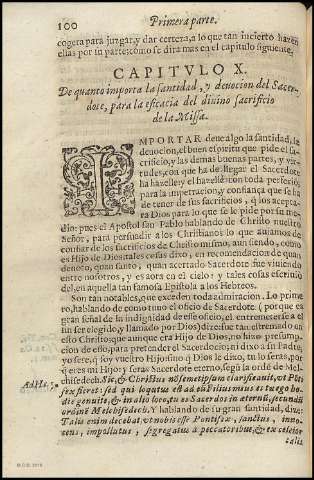 100
Primera parte.
cogera para juzgar, y dar certera, a lo que tan incierto hazen
ellas por su parte; como se dira mas en el capitulo siguiente.
CAPITVLO X.
De quanto importa la santidad, y deuocion del Sacer-
dote, para la eficacia del diuino sacrificio
de la Missa.
IMPORTAR deue algo la santidad, la
deuocion, el buen espiritu que pide el sa-
crificio, y las demas buenas partes, y vir-
tudes, con que ha de llegar el Sacerdote
ha hazelle y el hazelle con toda perfecciō,
para la impetracion, y confiança que se ha
de tener de sus sacrificios, q̄ los aceptara
Dios para lo que se le pide por su me-
dio: pues el Apostol san Pablo hablando de Christo nuestro
Señor, para persuadir a los Christianos lo que auiamos de
confiar de los sacrificios de Christo mismo, aun siendo, como
es Hijo de Dios; tales cosas dixo, en recomendacion de quan
deuoto, quan santo, quan acertado Sacerdote fue viuiendo
entre nosotros, y es aora en el cielo: y tales cosas escriuio
del, en aquella tan famosa Epistola a los Hebreos.
Son tan notables, que exceden toda admiracion. Lo prime
ro, hablando de como tuuo el oficio de Sacerdote (porque es
gran señal de la indignidad de esse oficio, el entremeterse a el
sin ser elegido, y llamado por Dios) dize fue tan estremado en
esto Christo; que aunque era Hijo de Dios, no hizo presump-
tuosamente, por ser elegido Sacerdote; ni dixo a su Padre,
yo sere, q̄ soy vuestro Hijo: sino q̄ Dios le dixo, tu lo seras, por
q̄ eres mi Hijo: y seras Sacerdote eterno, segū la ordē de Mel-
chisedech. Sic, & Christus nō semetipsum clarificauit, ut Pōti-
Ad Hb. 5.
fex fieret: sed qui loquutus est ad eū: Filius meus es tu, ego ho-
die genui te, & in alio loco, tu es Sacerdos in aeternū, secundū
ordinē Melchisedech. Y hablando de su gran santidad, dize:
Talis enim decebat, vt nobis esset Pontifex, sanctus, inno-
cens, impollutus, segregatus à peccatoribus, & excelsior
cælis